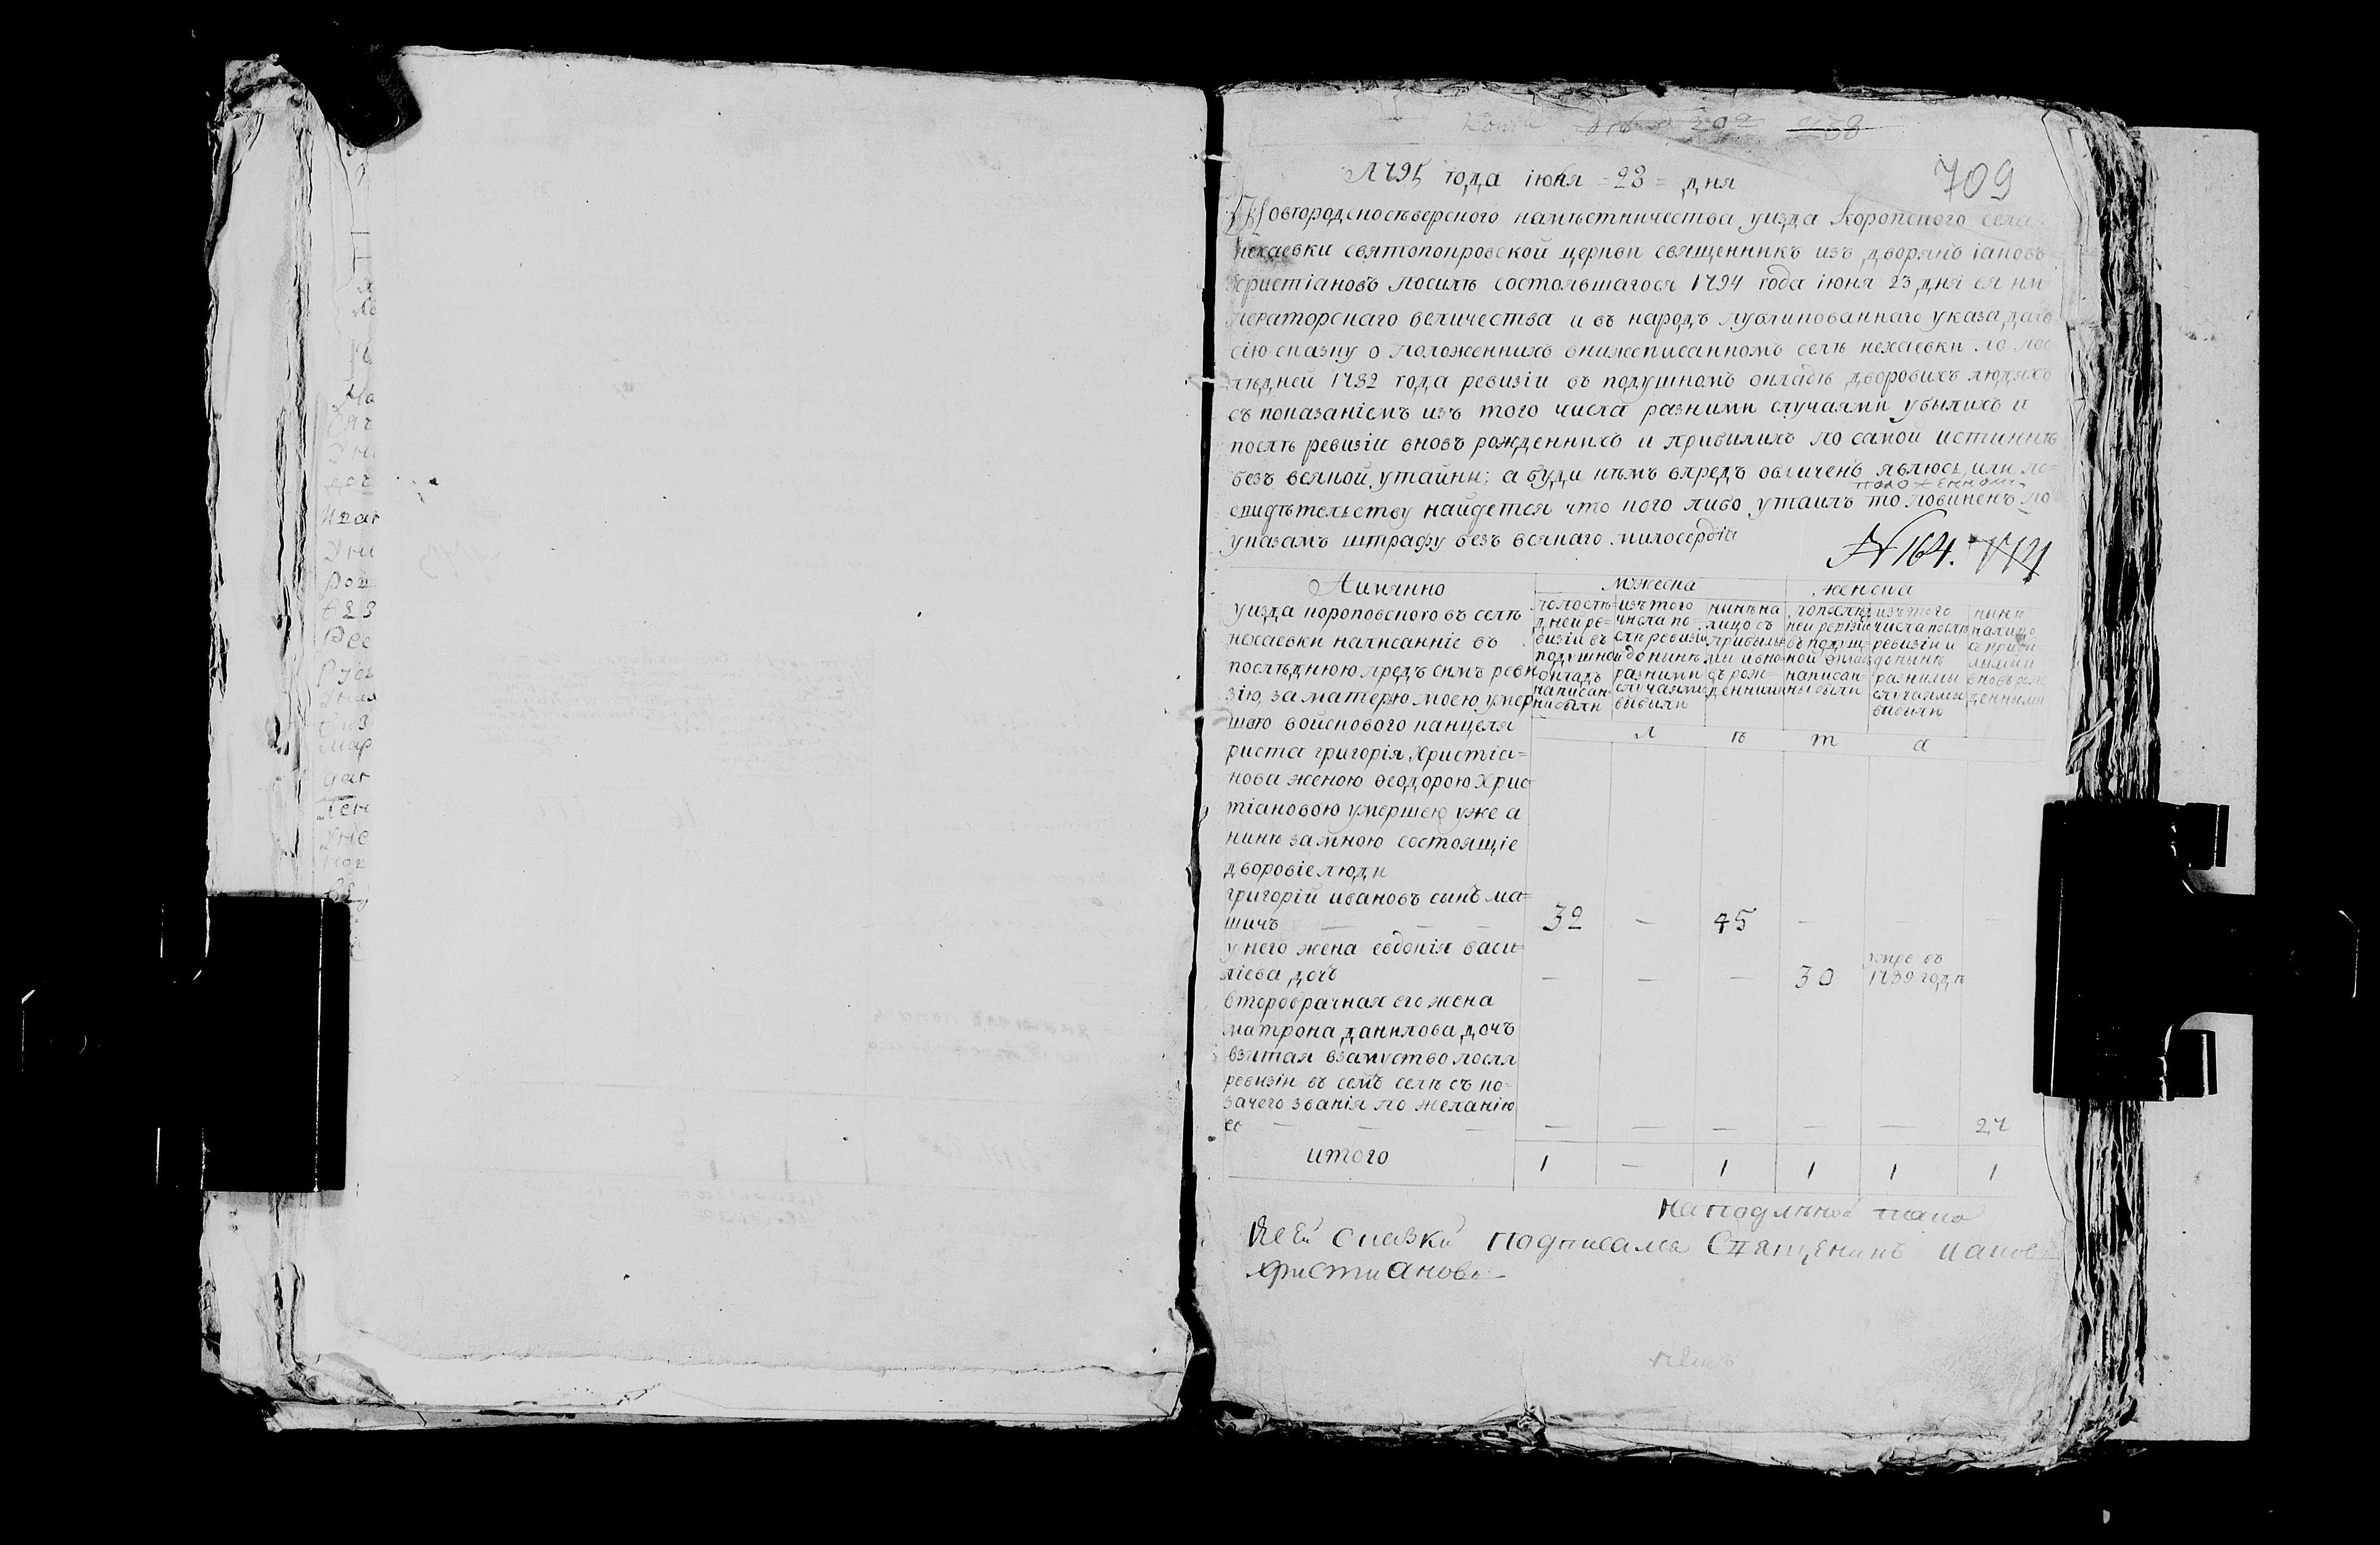 709
1795 года іюня 23 дня
Новгородсносѣверсного намѣстничества уизда коропсного села
нехаевки святопопровской церкви священникъ изъ дворянъ іановъ
христіановъ посилѣ состоявшагося 1794 года іюня 23 дня ея им
ператорснаго величества и въ народъ публинованнаго указа дать
сію сказну о положеннихъ внижеписанномъ селѣ нехаевки по пос
лѣдней 1782 года ревизіи въ подушномъ онладѣ дворовихъ людяхъ
съ поназаніемъ изъ того числа разними случаями убылихъ и
послѣ ревизіи вновъ рожденнихъ и прибилихъ по самой истиннѣ
безъ всяной утайни; а буди нѣмъ впредъ обличенъ явлюсь или по=
положенному
свидѣтельству найдется что ного либо утаилъ то повиненъ по
уназамъ штрафу безъ всянаго милосердія
№ 164.
Аимянно
мужеска
женска
уизда нороповсного въ селѣ
нехаевки написанніе въ
послѣднюю предъ симъ реви
зію, за матерю моею умер
шого войснового нанцеля
риста григорія Христіа=
нова женою ѳеодорою Хрис
тіановою умершею уже а
нинѣ замною состоящіе
дворовіе люди
послѣ= дней ре= визіи въ подушной онладъ написан= ни были
изъ того числа по= слѣ ревизіи до нинѣ разними случаями вибили
нинѣ на лицо съ прибыли= ми и вно= въ рож= денними
попослѣд ней ревизіи въ подуш= ной онлад написан= ны были
изъ того числа послѣ ревизіи и до нинѣ разними случаями вибыли
нинѣ налицо съ приби лими и вновъ рож денними
л ѣ т а
григорій ивановъ сынъ ма=
шичъ 32 — 45 — — —
у него жена евдокія васи=
ліева дочъ — — — 30 умре въ 1789 годѣ
второбрачная его жена
матрона данилова дочъ
взятая взамуство посля
ревизіи въ семъ селѣ съ но=
зачего званія по желанію
ея — — — — — 27
итого 1 — 1 1 1 1
На подлѣной тано
Кеей сказки подписался Священикъ иановъ
христиановъ